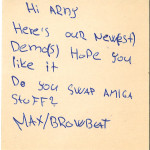 Hi ARNY
Here's our New(est)
Demo(s) Hope you
like it
Do you SWAP AMIGA
STUFF?
MAX/BROWBEAT